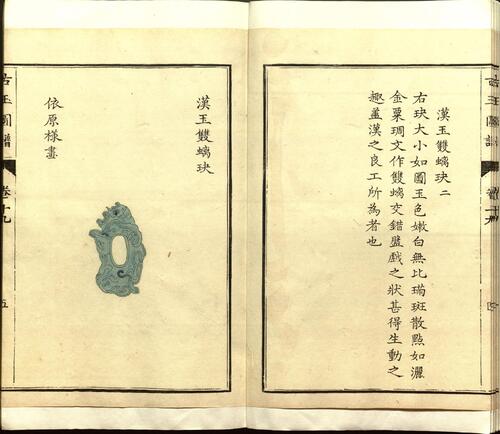 古玉圖譜 卷十九 四
漢玉雙螭玦二
右玦大小如圖玉色嫩白無比璊斑散點如灑
金粟琱文作雙螭交錯盤戲之狀甚得生動之
趣葢漢之良工所為者也
漢玉雙螭玦
依原樣畫
古玉圖譜 卷十九 五